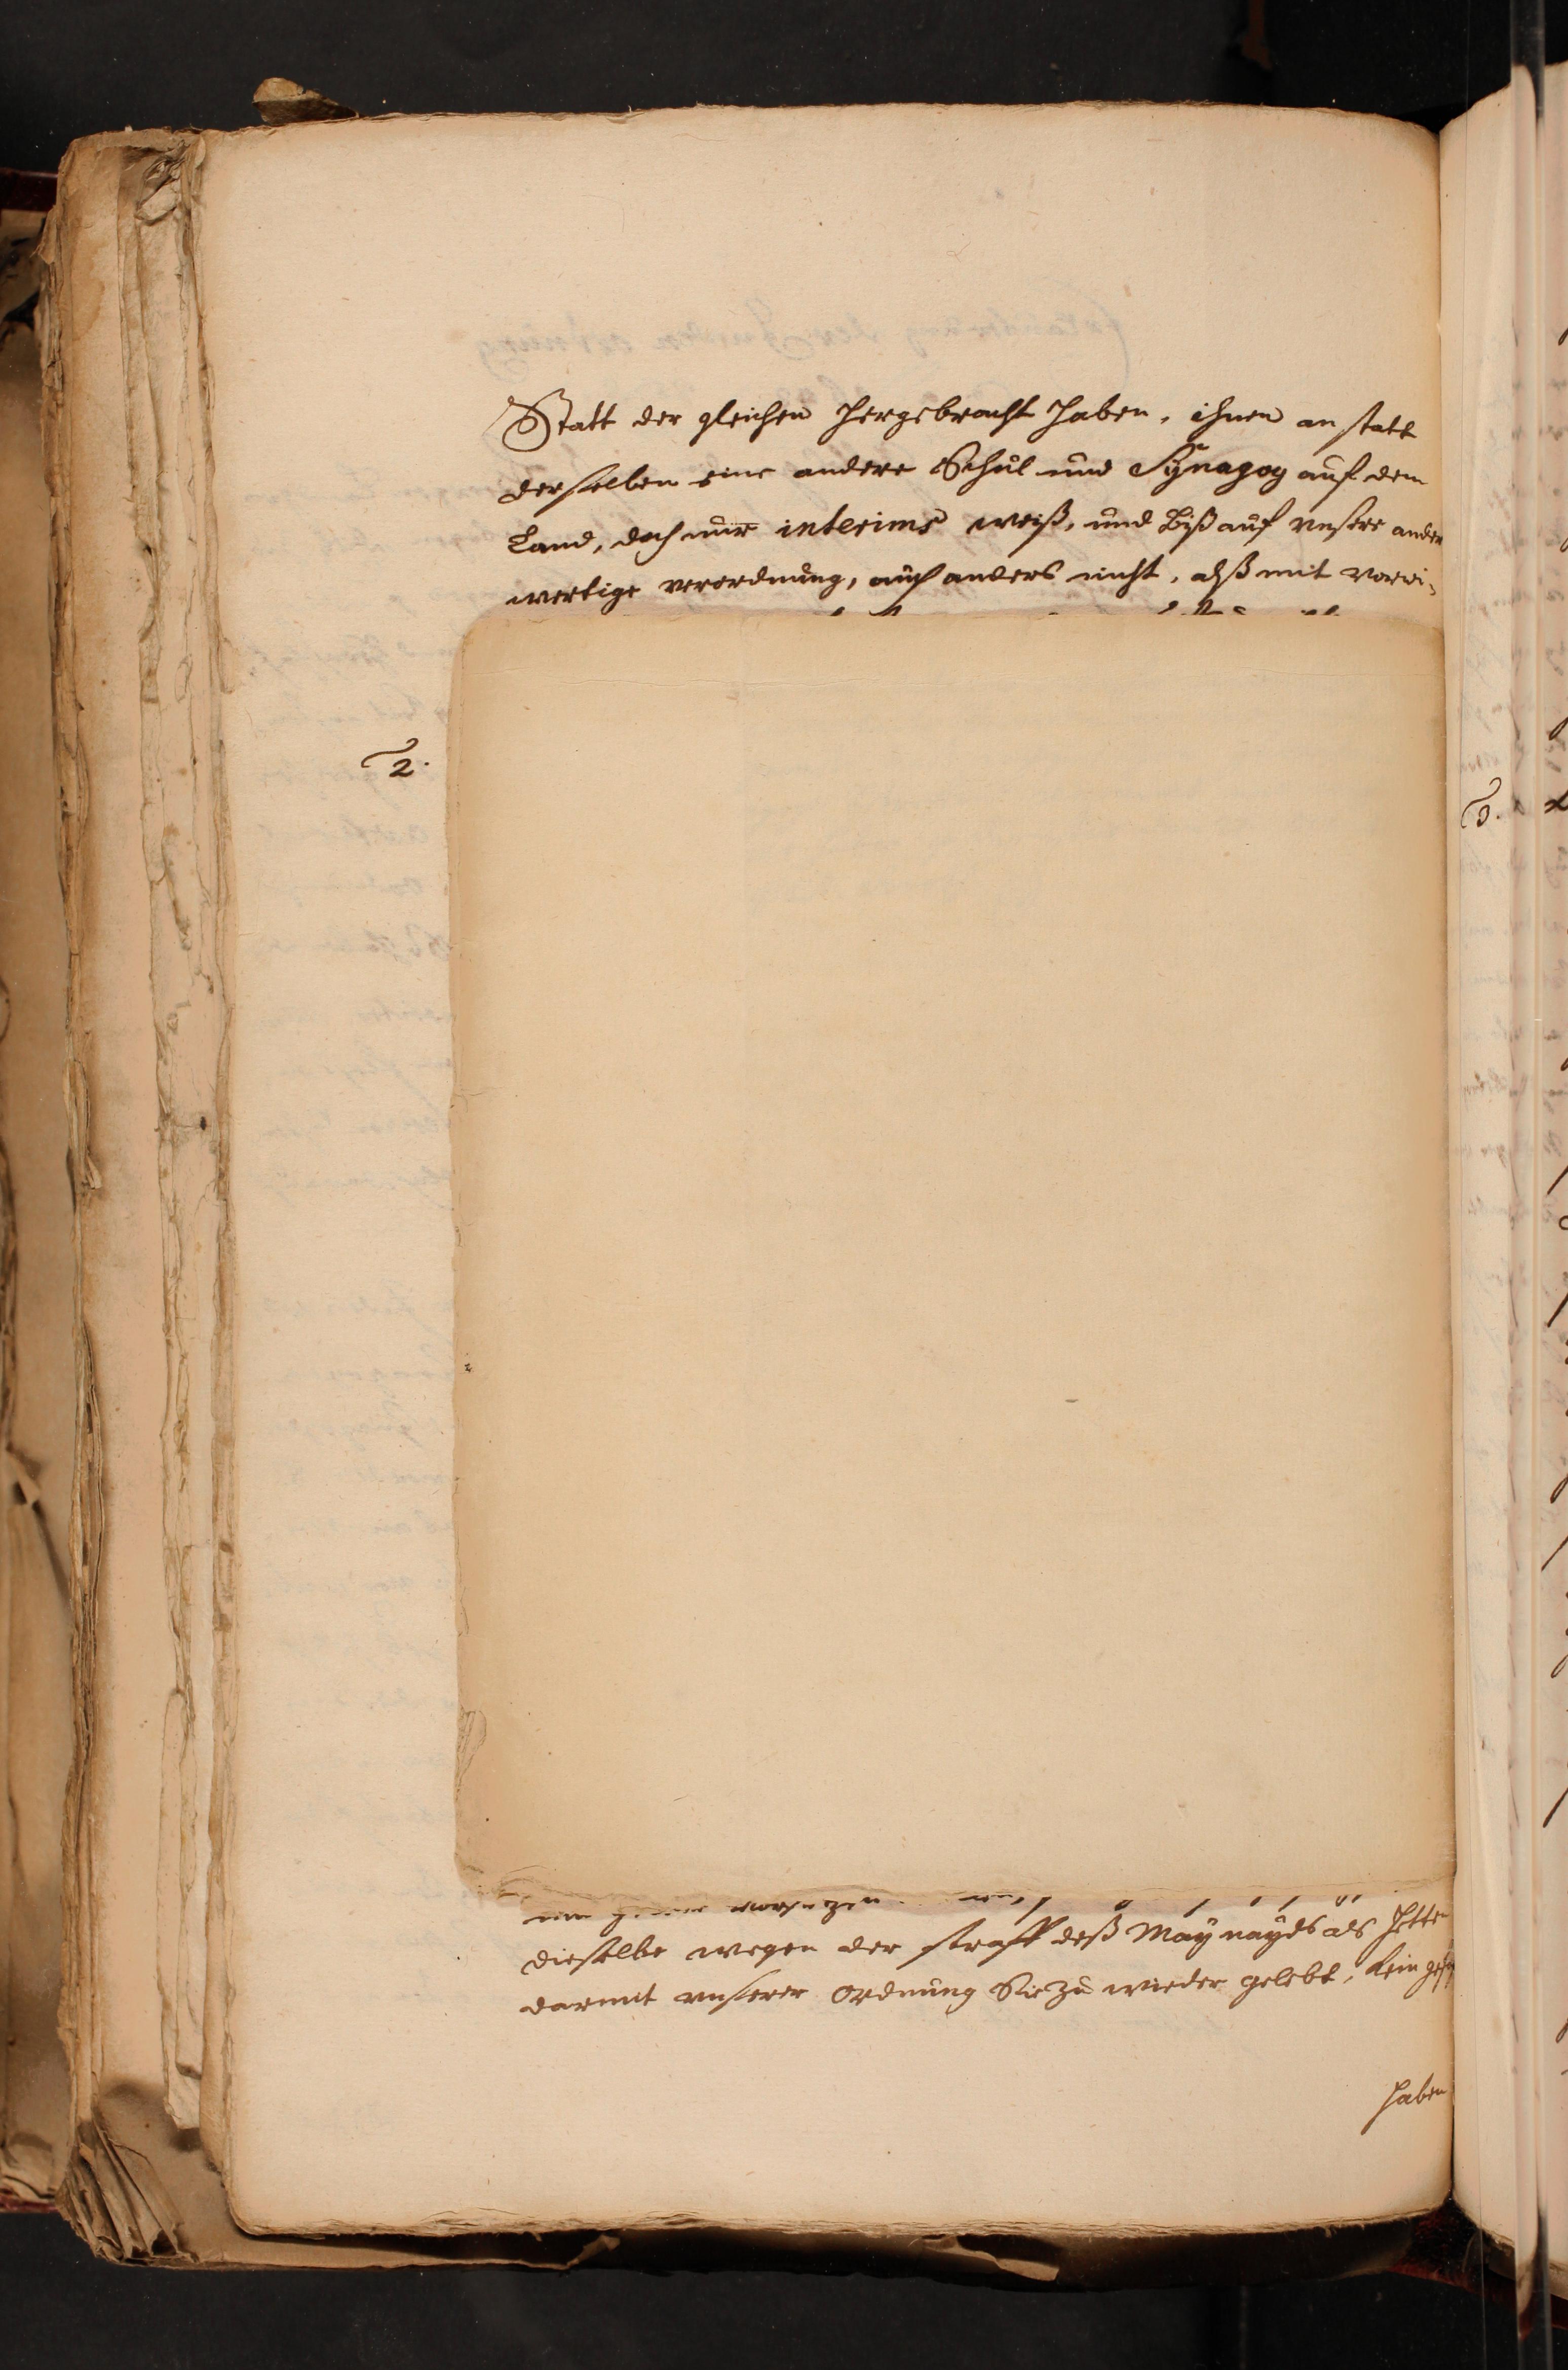 Statt der gleichen hergebracht haben, ihnen an statt
derselben eine andere Schul und Synagog auf dem
Land, doch nur interims weiß, und biß auf unsere ander
wertige verordnung, auch anders nicht, alß mit vorwi-
2.
dieselbe wegen der straff deß Maynayds als hette
darmit unserer Ordnung Sie zu wieder gelebt, kein
haben
3.